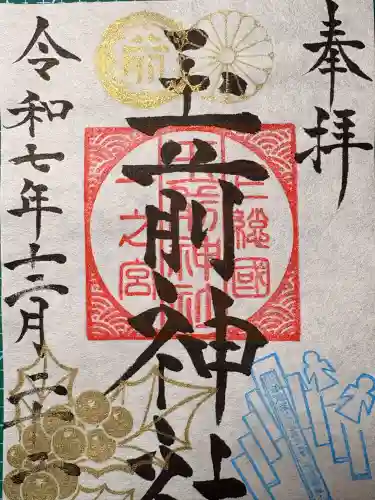 奉拝
玉前神社
上總國
玉前神社
一之宮
令和七年十二月二十